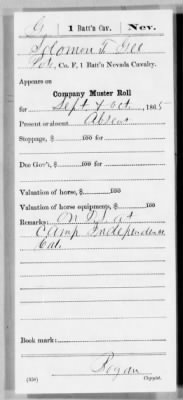 G | 1 Batt'n Cav. | Nev.
Solomon T. Gee
Pvt, Co. F, 1 Batt'n Nevada Cavalry.
Appears on
Company Muster Roll
for Sept & Oct, 1865
Present or absent Absent
Stoppage, $ 100 for
Due Gov't, $ 100 for
Valuation of horse, $ 100
Valuation of horse equipments, $ 100
Remarks: On D.S. at
Camp Independence
Cal.
Book mark:
Bogan
(358) Copyist.